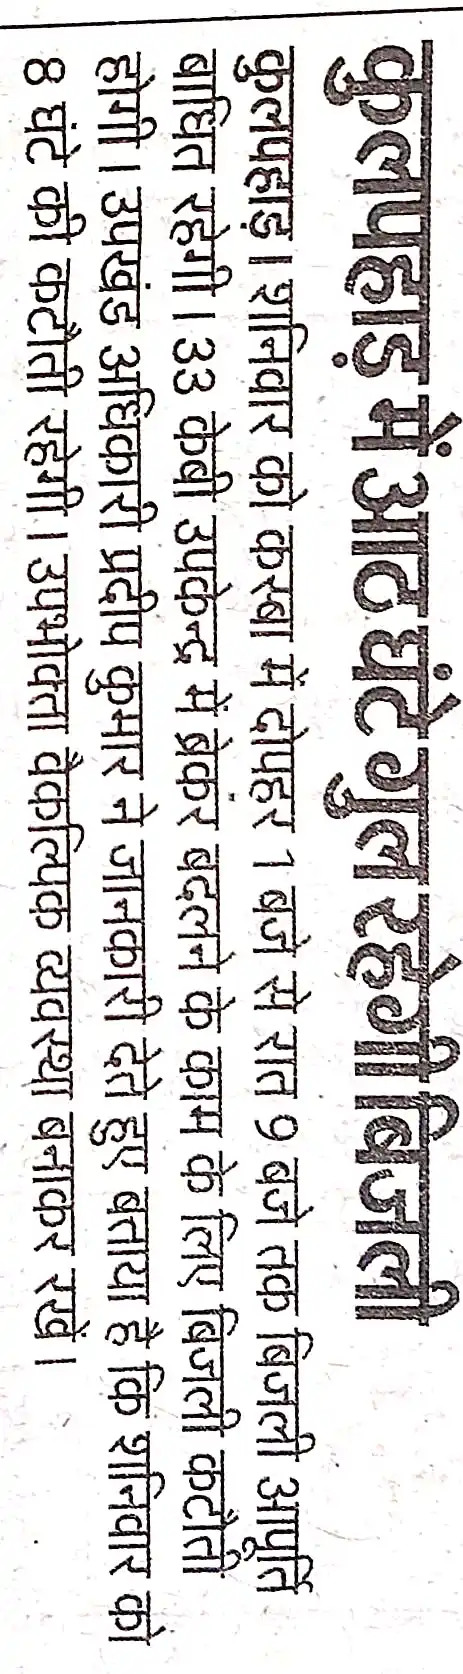 कुलपहाड़ में आठ घंटे गुल रहेगी बिजली
कुलपहाड़। शनिवार को कस्बा में दोपहर 1 बजे से रात 9 बजे तक बिजली आपूर्ति
बाधित रहेगी। 33 केबी उपकेन्द्र में ब्रेकर बदलने के काम के लिए बिजली कटौती
होगी। उपखंड अधिकारी प्रदीप कुमार ने जानकारी देते हुए बताया है कि शनिवार को
8 घंटे की कटौती रहेगी। उपभोक्ता वैकल्पिक व्यवस्था बनाकर रखें।